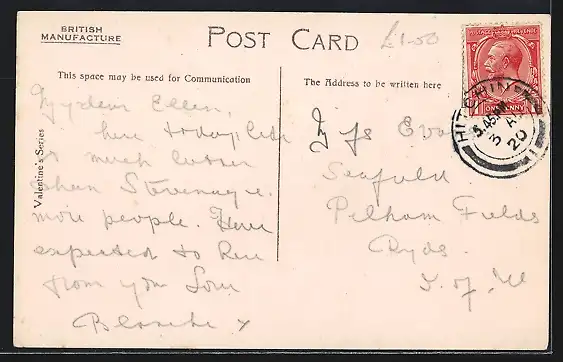 BRITISH
MANUFACTURE
POST CARD
£1.50
This space may be used for Communication
The Address to be written here
Valentine's Series
My dear Ellen,
here today, like
so much better
than Stevenage.
more people. Have
expected to hear
from you Love
Blanche x
Eva
Seafield
Pelham Fields
Ryde.
I. of. W
POSTAGE REVENUE
ONE PENNY
HITCHIN
3 AP
20